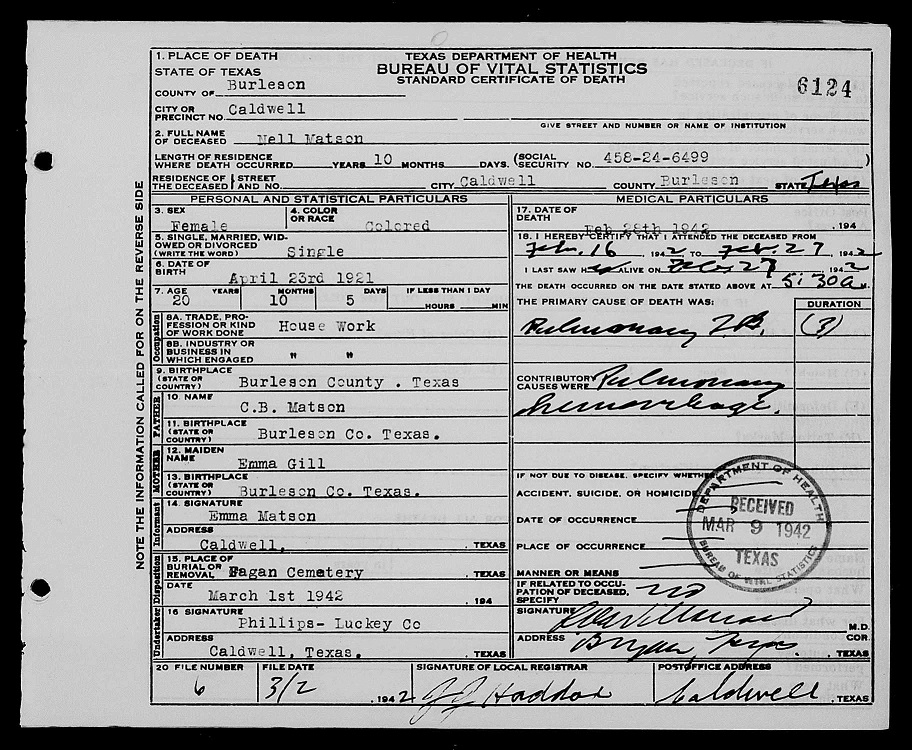 TEXAS DEPARTMENT OF HEALTH
BUREAU OF VITAL STATISTICS
STANDARD CERTIFICATE OF DEATH
6124
NOTE THE INFORMATION CALLED FOR ON THE REVERSE SIDE
1. PLACE OF DEATH
STATE OF TEXAS
COUNTY OF Burleson
CITY OR PRECINCT NO. Caldwell
GIVE STREET AND NUMBER OR NAME OF INSTITUTION
2. FULL NAME OF DECEASED Nell Matson
LENGTH OF RESIDENCE WHERE DEATH OCCURRED YEARS 10 MONTHS DAYS. (SOCIAL SECURITY NO. 458-24-6499)
RESIDENCE OF THE DECEASED STREET AND NO. CITY Caldwell COUNTY Burleson STATE Texas
PERSONAL AND STATISTICAL PARTICULARS
3. SEX Female 4. COLOR OR RACE Colored
5. SINGLE, MARRIED, WIDOWED OR DIVORCED (WRITE THE WORD) Single
6. DATE OF BIRTH April 23rd 1921
7. AGE 20 YEARS 10 MONTHS 5 DAYS IF LESS THAN 1 DAY HOURS MIN
Occupation
8A. TRADE, PROFESSION OR KIND OF WORK DONE House Work
8B. INDUSTRY OR BUSINESS IN WHICH ENGAGED " "
9. BIRTHPLACE (STATE OR COUNTRY) Burleson County . Texas
FATHER
10. NAME C.B. Matson
11. BIRTHPLACE (STATE OR COUNTRY) Burleson Co. Texas.
MOTHER
12. MAIDEN NAME Emma Gill
13. BIRTHPLACE (STATE OR COUNTRY) Burleson Co. Texas.
Informant
14. SIGNATURE Emma Matson
ADDRESS Caldwell, , TEXAS
Disposition
15. PLACE OF BURIAL OR REMOVAL Fagan Cemetery , TEXAS
DATE March 1st 1942 , 194
Undertaker
16 SIGNATURE Phillips- Luckey Co
ADDRESS Caldwell, Texas. , TEXAS
MEDICAL PARTICULARS
17. DATE OF DEATH Feb 28th 1942 , 194
18. I HEREBY CERTIFY THAT I ATTENDED THE DECEASED FROM
Feb. 16 , 1942 TO Feb. 27 , 1942
I LAST SAW HER ALIVE ON Feb 27 1942
THE DEATH OCCURRED ON THE DATE STATED ABOVE AT 5:30 a M.
THE PRIMARY CAUSE OF DEATH WAS: DURATION
Pulmonary T.B. (3)
CONTRIBUTORY CAUSES WERE Pulmonary
hemorrhage.
IF NOT DUE TO DISEASE, SPECIFY WHETHER
ACCIDENT, SUICIDE, OR HOMICIDE
DATE OF OCCURRENCE
PLACE OF OCCURRENCE
MANNER OR MEANS
IF RELATED TO OCCUPATION OF DECEASED, SPECIFY no
SIGNATURE M.D.
ADDRESS Bryan, Texas. COR. , TEXAS
DEPARTMENT OF HEALTH
RECEIVED
MAR 9 1942
TEXAS
BUREAU OF VITAL STATISTICS
20 FILE NUMBER 6
FILE DATE 3/2 , 1942
SIGNATURE OF LOCAL REGISTRAR
POSTOFFICE ADDRESS Caldwell , TEXAS